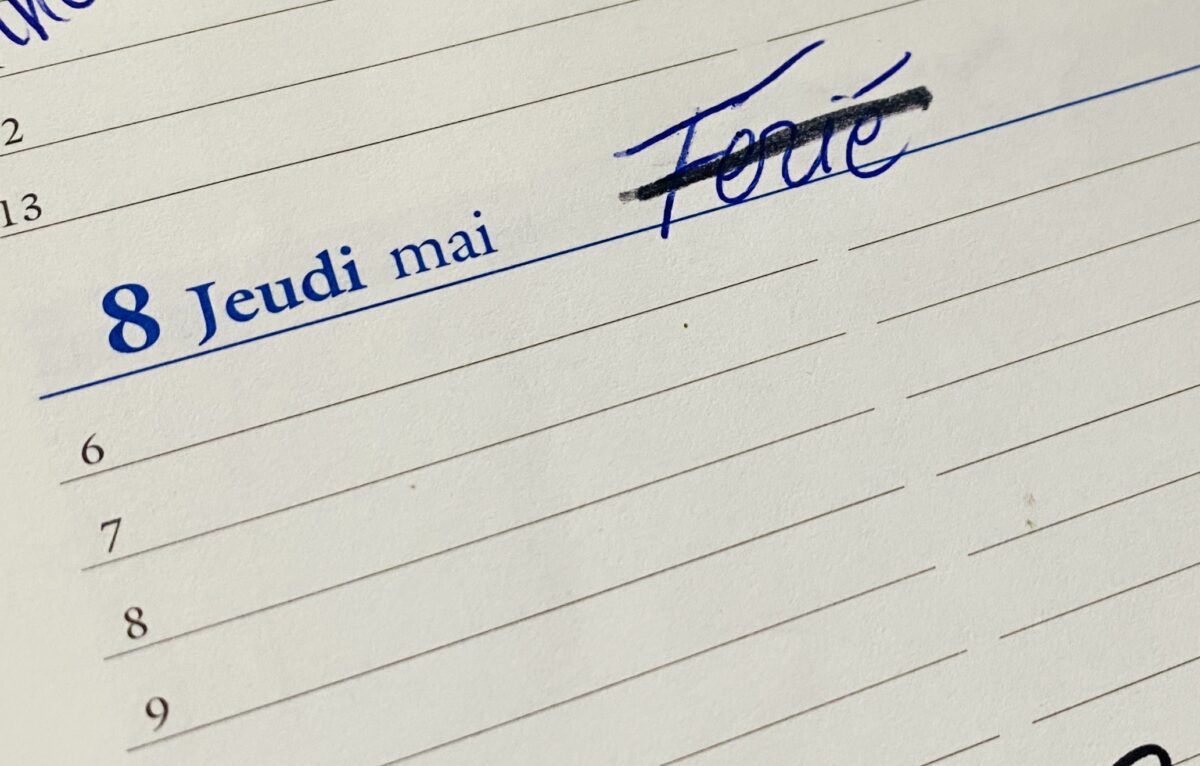 2
13
Ferié
8 Jeudi mai
6
7
8
9